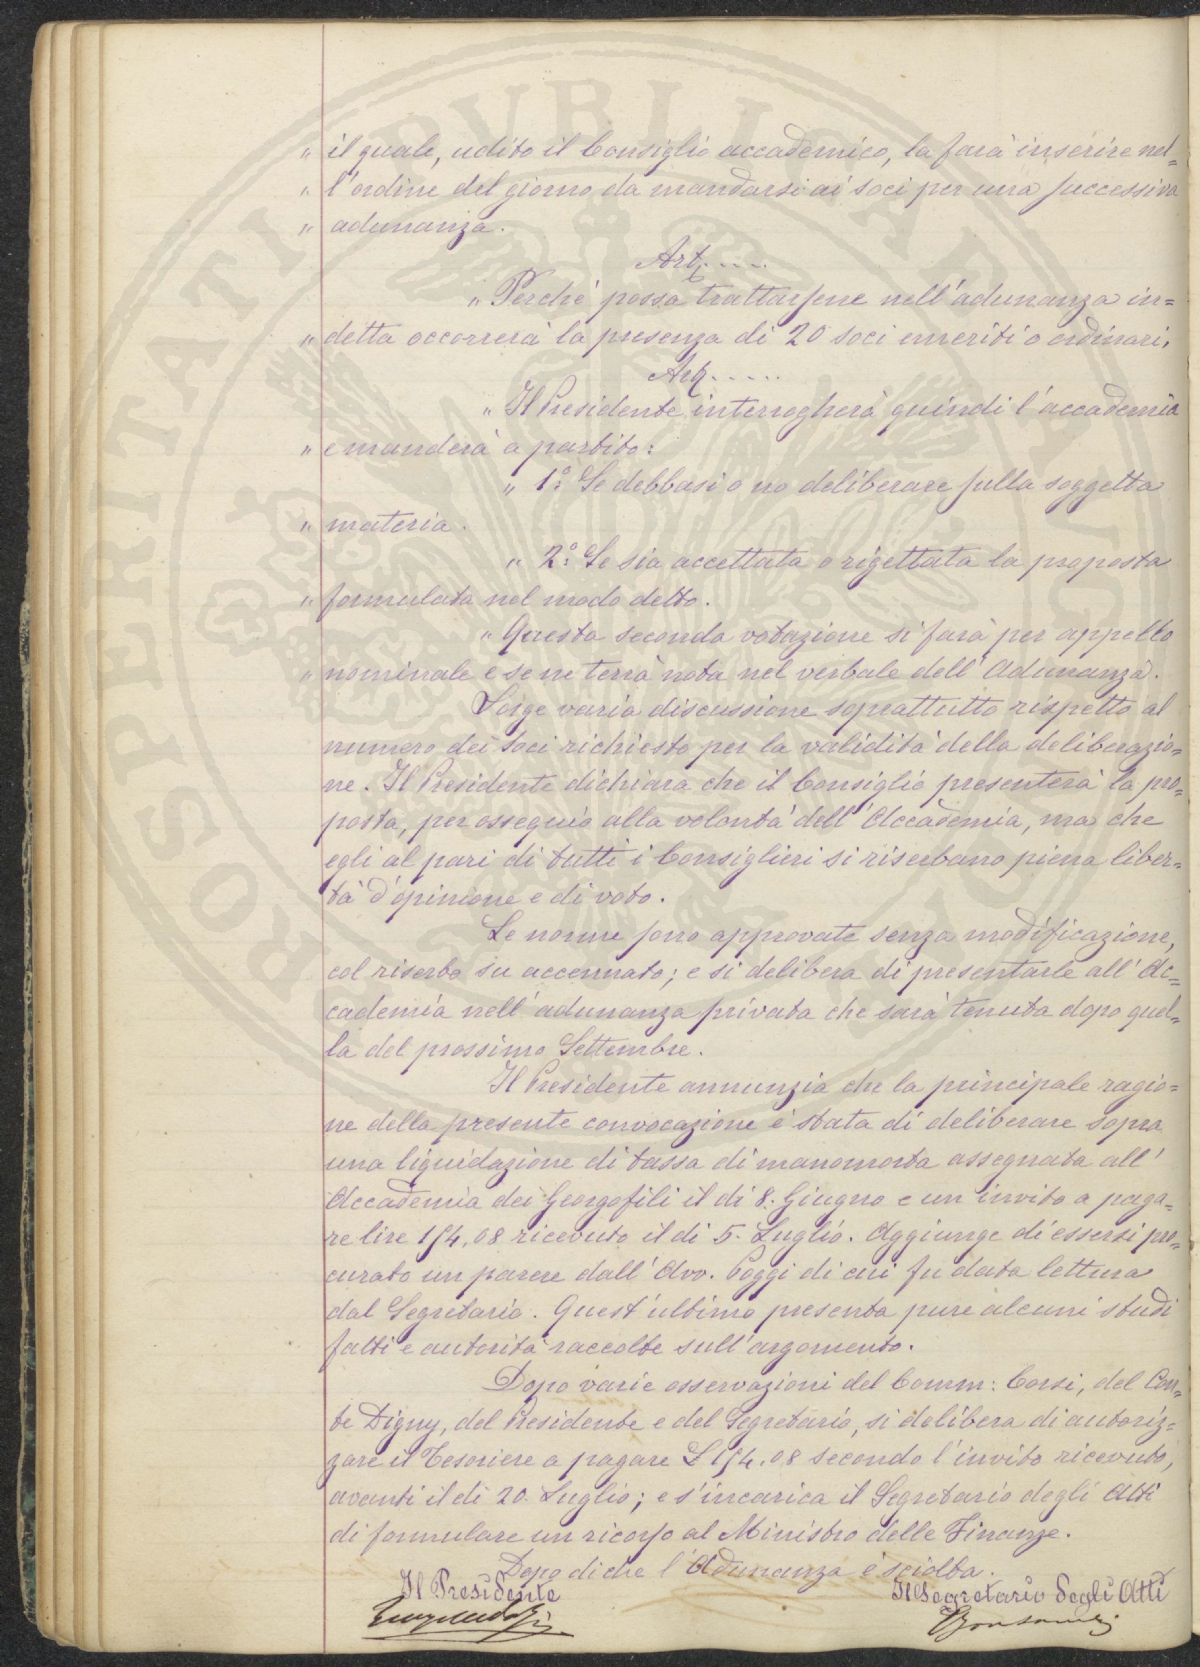 „ il quale, udito il Consiglio accademico, la farà inserire nel=
„ l'ordine del giorno da mandarsi ai soci per una successiva
„ adunanza.
Art. ....
„ Perchè possa trattarsene nell'adunanza in=
„ detta occorrerà la presenza di 20 soci emeriti o ordinari.
Art. .....
„ Il Presidente interrogherà quindi l'accademia
„ e manderà a partito:
„ 1.° Se debbasi o no deliberare sulla soggetta
„ materia.
„ 2.° Se sia accettata o rigettata la proposta
„ formulata nel modo detto.
„ Questa seconda votazione si farà per appello
„ nominale e se ne terrà nota nel verbale dell'Adunanza.
Sorge varia discussione soprattutto rispetto al
numero dei soci richiesto per la validità della deliberazio=
ne. Il Presidente dichiara che il Consiglio presenterà la pro=
posta, per ossequio alla volontà dell'Accademia, ma che
egli al pari di tutti i Consiglieri si riserbano piena liber=
tà d'opinione e di voto.
Le norme sono approvate senza modificazione,
col riserbo su accennato; e si delibera di presentarle all'Ac=
cademia nell'adunanza privata che sarà tenuta dopo quel=
la del prossimo Settembre.
Il Presidente annunzia che la principale ragio=
ne della presente convocazione è stata di deliberare sopra
una liquidazione di tassa di manomorta assegnata all'
Accademia dei Georgofili il di 8. Giugno e un invito a paga=
re lire 154,08 ricevuto il di 5. Luglio. Aggiunge di essersi pro=
curato un parere dall'Avv. Poggi di cui fu data lettura
dal Segretario. Quest'ultimo presenta pure alcuni studi
fatti e autorità raccolte sull'argomento.
Dopo varie osservazioni del Comm: Corsi, del Con=
te Digny, del Presidente e del Segretario, si delibera di autoriz=
zare il Tesoriere a pagare L 154.08 secondo l'invito ricevuto,
avanti il di 20. Luglio; e s'incarica il Segretario degli Atti
di formulare un ricorso al Ministro delle Finanze.
Dopo di che l'Adunanza è sciolta.
Il Presidente
Il Segretario degli Atti
PROSPERITATI PUBLICAE